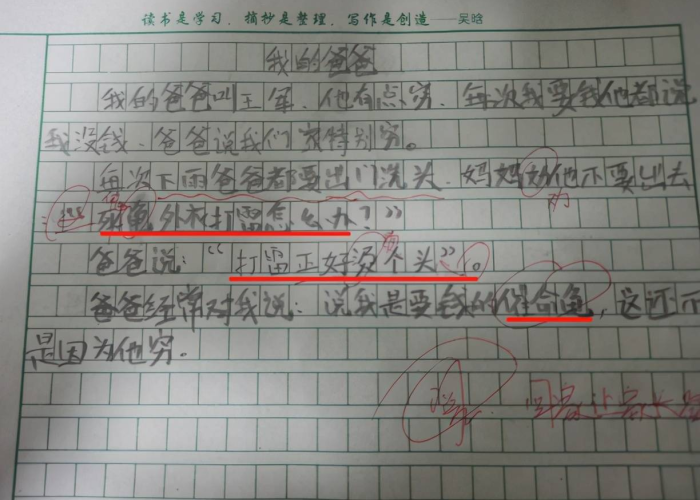 读书是学习,摘抄是整理,写作是创造——吴晗
我的爸爸
我的爸爸叫王军、他有点穷、每次我要钱他都说
我没钱、爸爸说我们家特别穷。
每次下雨爸爸都要出门洗头、妈妈劝他不要出去
外衣打雷怎么办?”
爸爸说:“打雷正好烫个头”。
爸爸经常对我说:说我是要钱的催命鬼,这还不
是因为他穷。
回家让家长